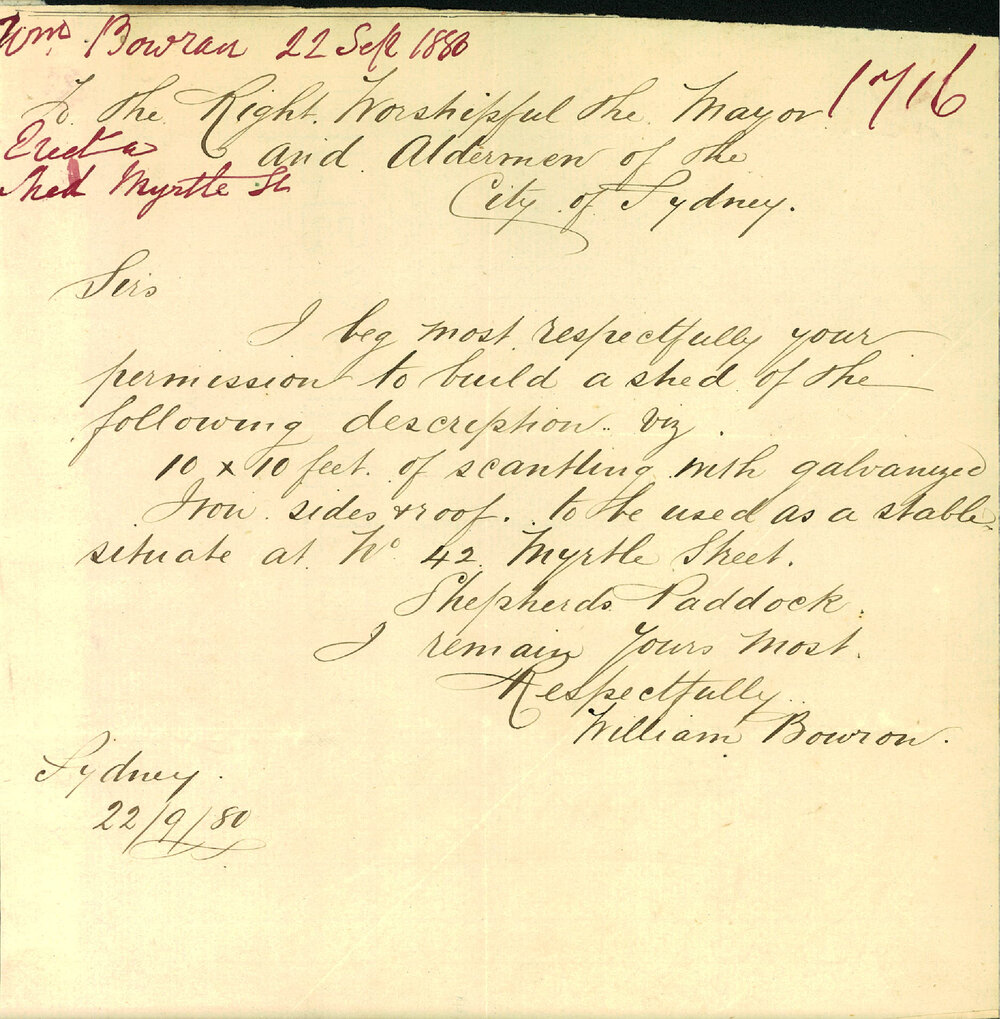 Wm Bowran 22 Sep 1880
1716
To the Right Worshipful the Mayor
Erect a
and Aldermen of the
shed Myrtle St
City of Sydney.
Sirs
I beg most respectfully your
permission to build a shed of the
following description.. viz.
10 x 10 feet. of scantling with galvanized
Iron sides & roof. to be used as a stable
situate at No 42 Myrtle Street.
Shepherds Paddock.
I remain Yours Most.
Respectfully
William Bowron.
Sydney.
22/9/80